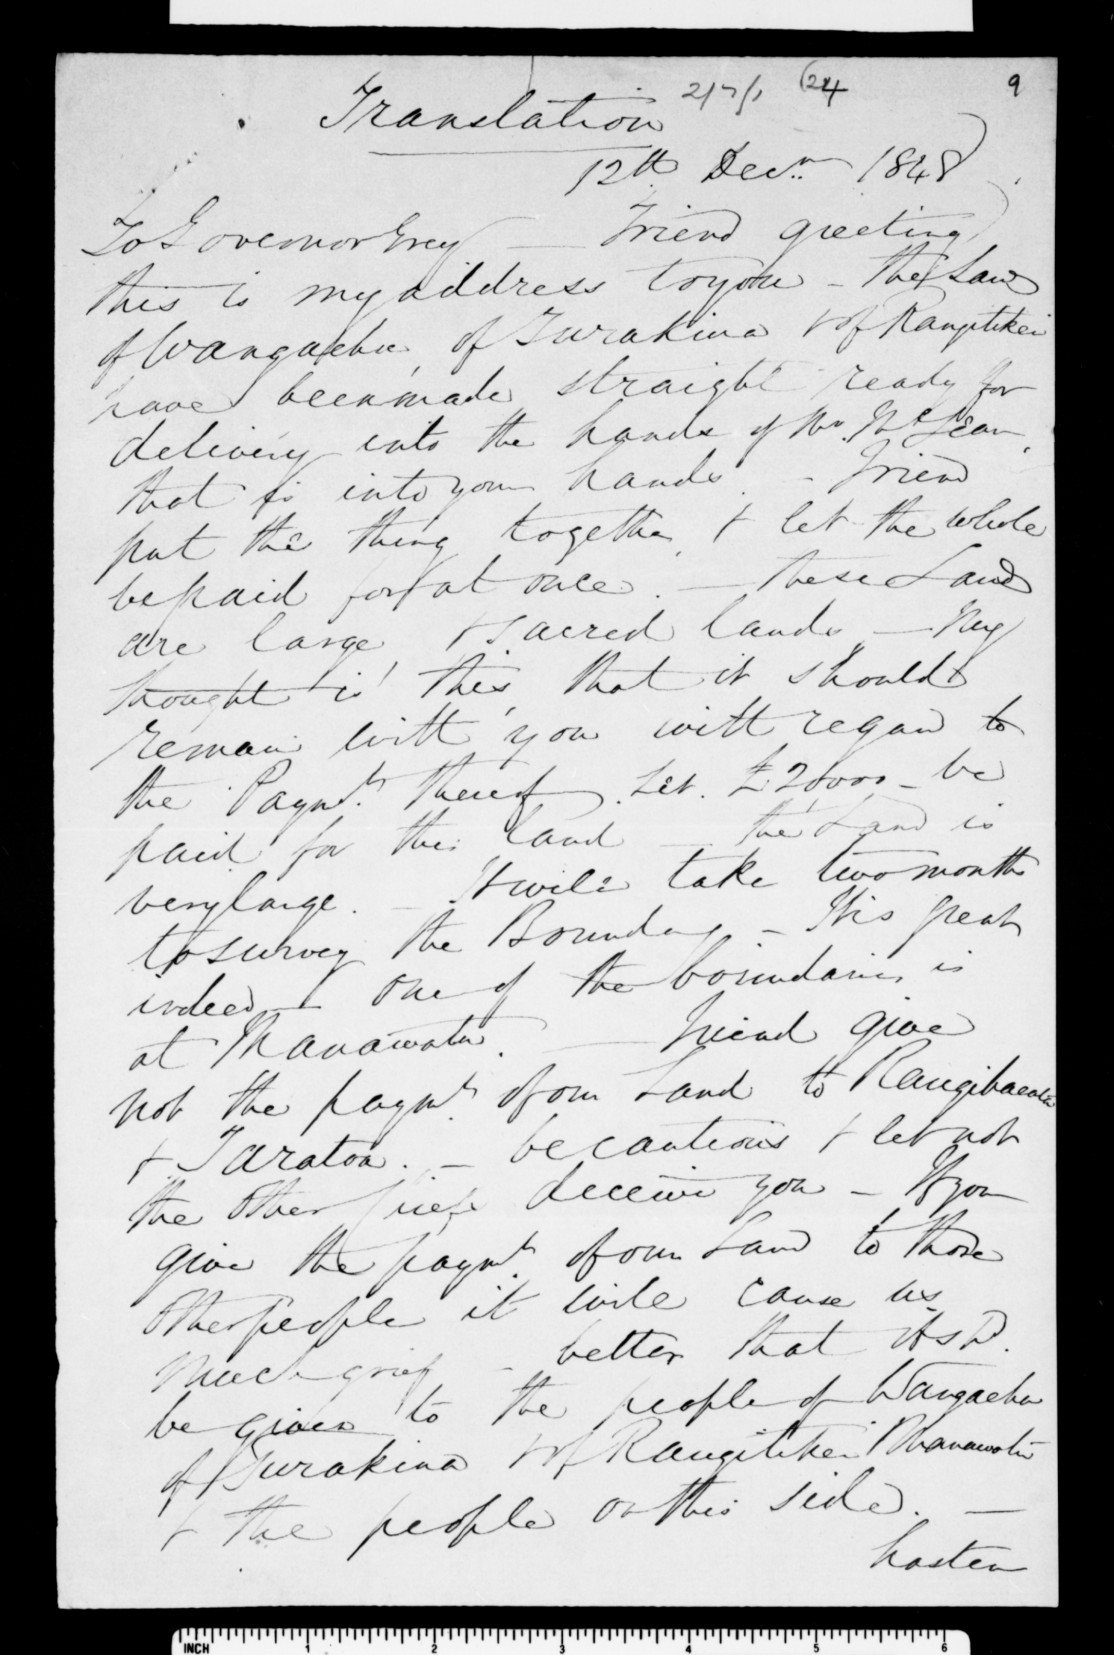 Translation
24
9
12th Decr. 1848
To Governor Grey — Friend greeting
this is my address to you - the Land
of Wangaehu, of Turakina & of Rangitikei
have been made straight ready for
delivery into the hands of Mr. McLean,
that is into your hands. - Friend
put the thing together & let the whole
be paid for at once. — these Land
are large & sacred lands — My
thought is this, that it should
remain with you with regard to
the Paymt. thereof. Let £2000 - be
paid for this land — the Land is
very large. - It will take two months
to survey the Boundary - It is great
indeed - one of the boundaries is
at Manawatu. — Friend give
not the paymt. of our Land to Rangihaeata
& Taratoa. - be cautious & let not
the other chiefs deceive you - If you
give the paymt. of our Land to those
other people it will cause us
much grief - better that it shd.
be given to the people of Wangaehu
of Turakina & of Rangitikei Manawatu
& the people on this side. —
hasten
INCH 1 2 3 4 5 6